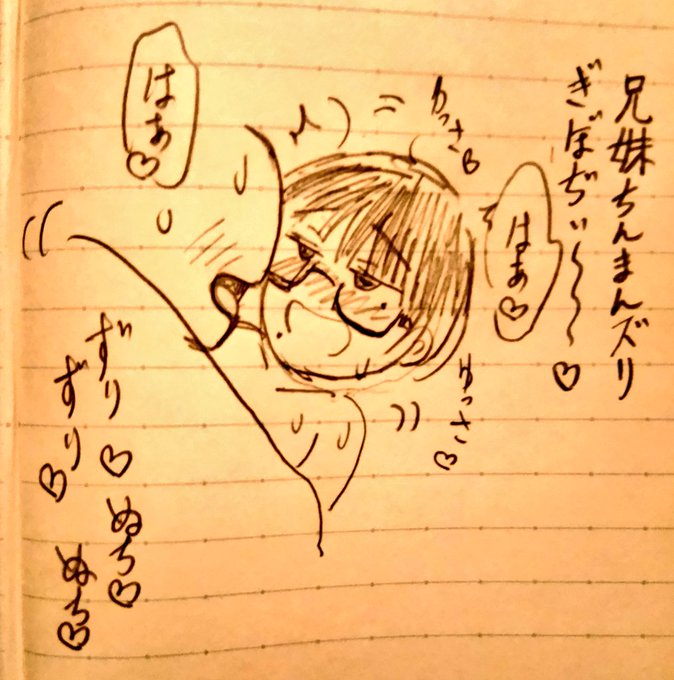 兄妹ちんまんズリ
ぎぼぢぃ〜〜〜♡
はぁ♡
ゆっさ♡
ゆっさ♡
はぁ♡
ずり♡ぬち♡
ずり♡ぬち♡